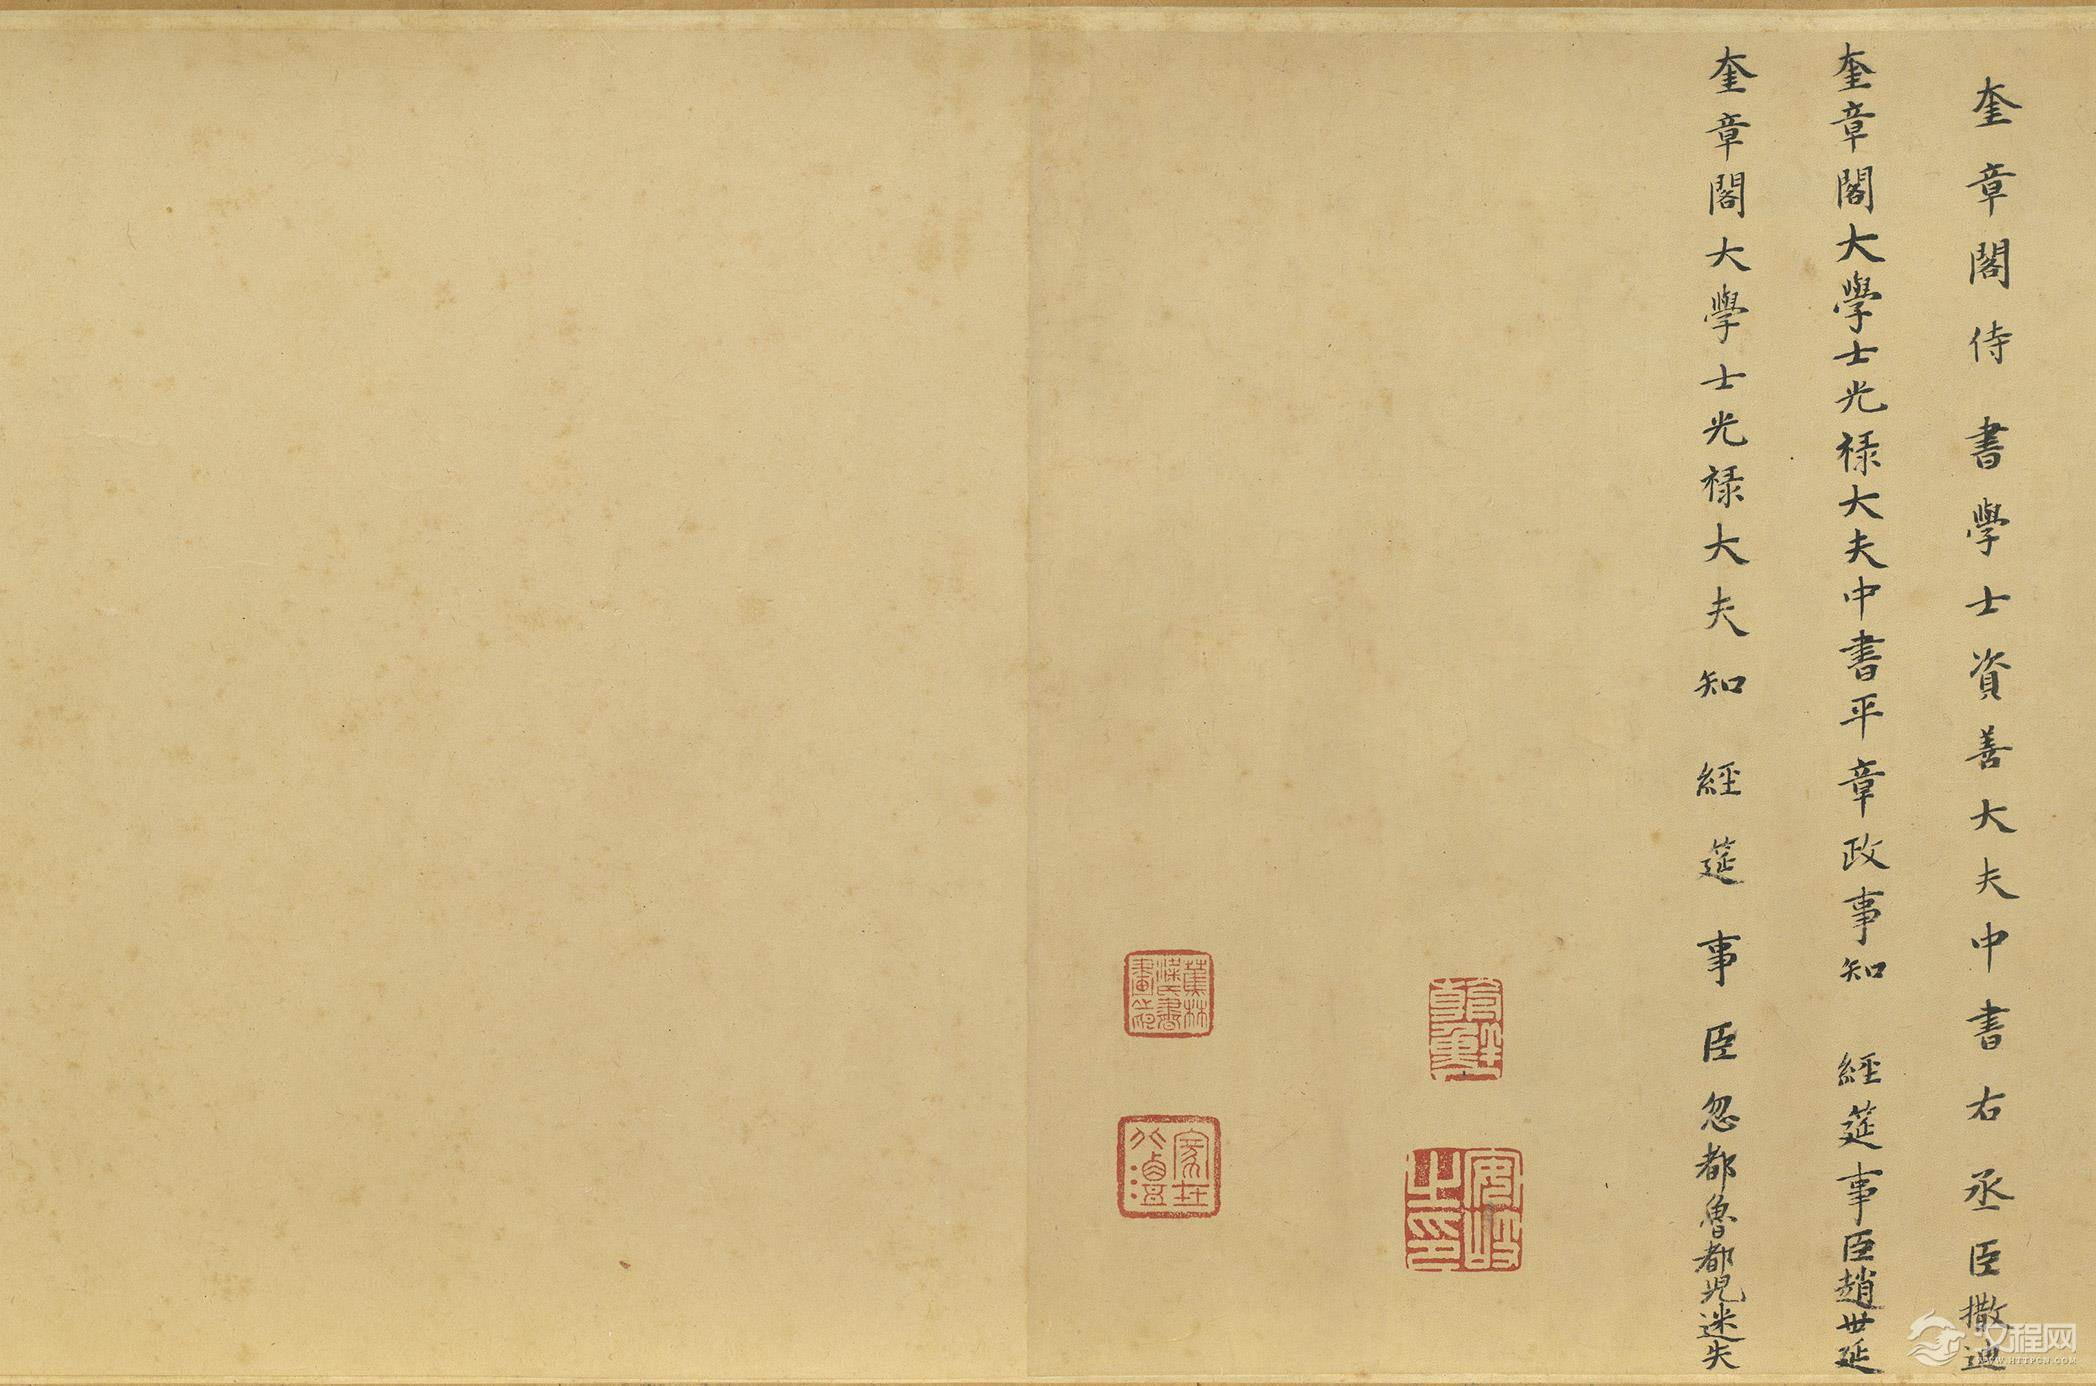 奎章閣侍書學士資善大夫中書右丞臣撒迪
奎章閣大學士光禄大夫中書平章政事知經筵事臣趙世延
奎章閣大學士光禄大夫知經筵事臣忽都魯都兒迷失
安岐之印
蕉林梁氏書畫之印
WWW.HTTPCN.COM